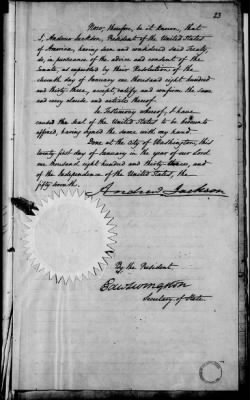 23
Now, therefore, be it known, that
I, Andrew Jackson, President of the United States
of America, having seen and considered said Treaty,
do, in pursuance of the advice and consent of the
Senate, as expressed by their Resolution of the
eleventh day of January one thousand eight hundred
and thirty three, accept, ratify, and confirm the same
and every clause and article thereof.
In Testimony whereof, I have
caused the seal of the United States to be hereunto
affixed, having signed the same with my hand.
Done at the city of Washington, this
twenty first day of January in the year of our Lord
one thousand eight hundred and thirty three, and
of the Independence of the United States, the
fifty seventh.
Andrew Jackson
By the President
Edw Livingston
Secretary of State.